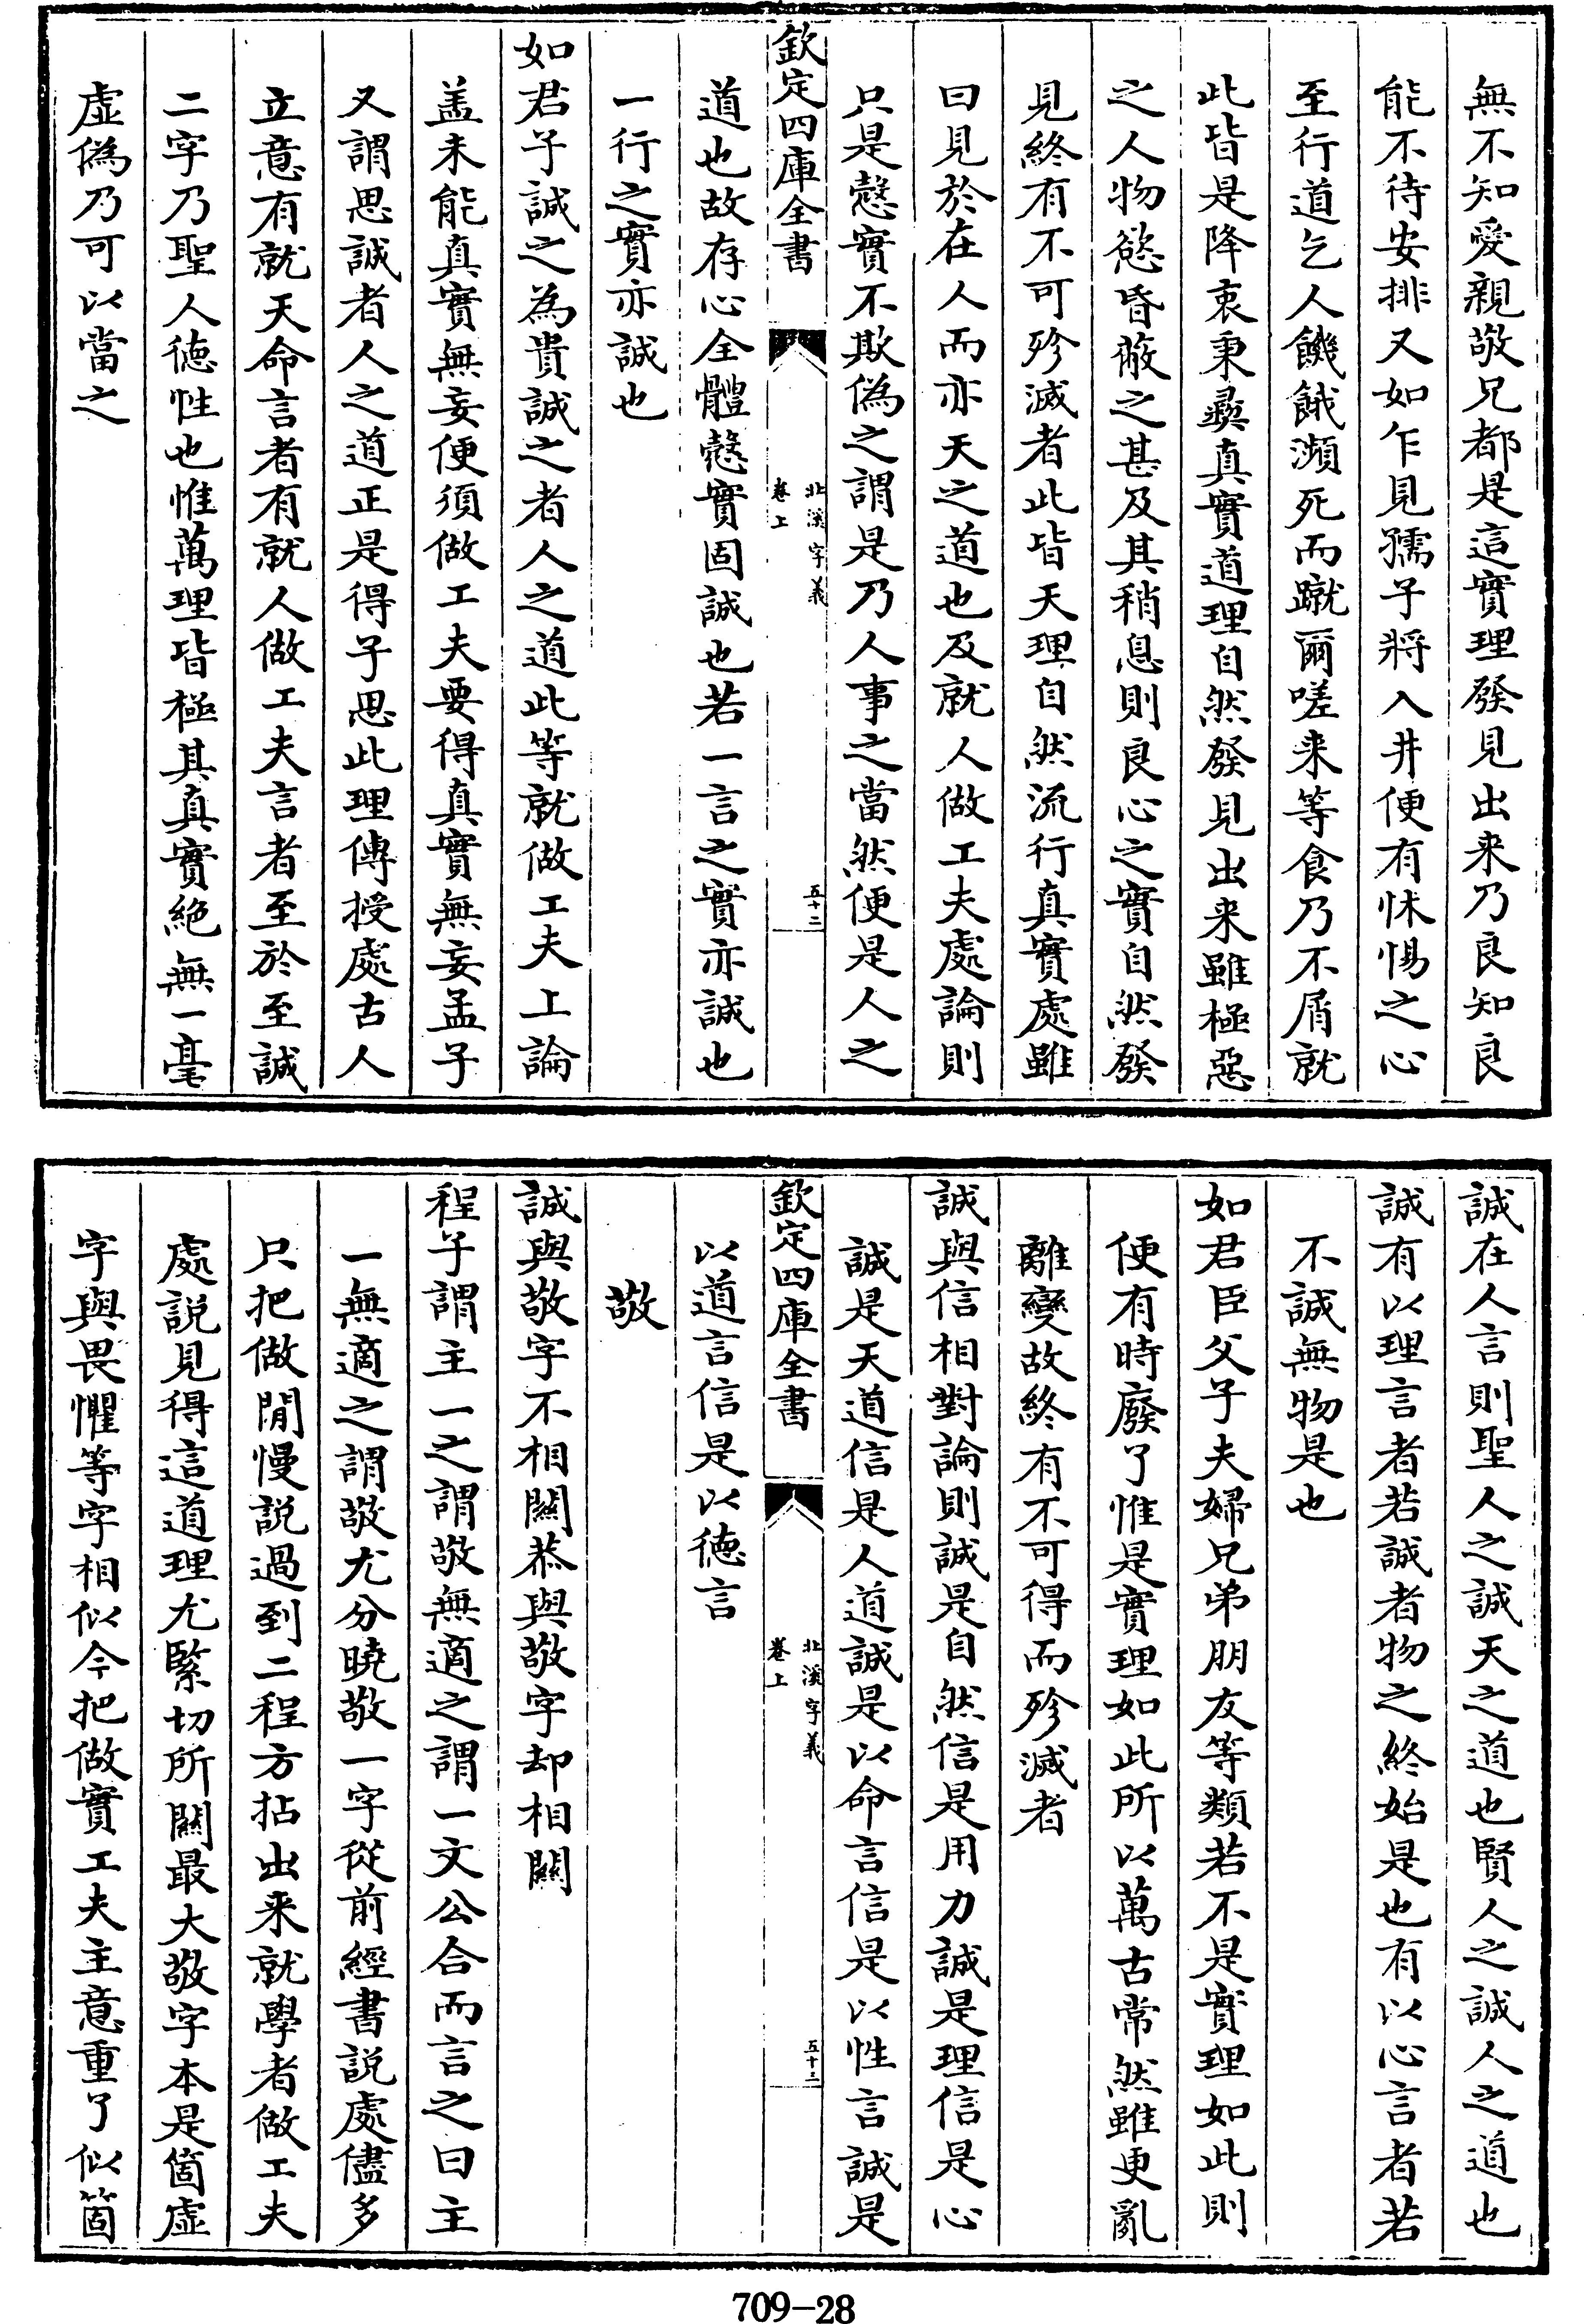 無不知愛親敬兄都是這實理發見出来乃良知良
能不待安排又如乍見孺子將入井便有怵惕之心
至行道乞人饑餓瀕死而蹴爾嗟来等食乃不屑就
此皆是降衷秉彛真實道理自然發見出来雖極惡
之人物慾昏蔽之甚及其稍息則良心之實自然發
見終有不可殄滅者此皆天理自然流行真實處雖
曰見於在人而亦天之道也及就人做工夫處論則
只是慤實不欺偽之謂是乃人事之當然便是人之
欽定四庫全書
北溪字義
卷上
五十二
道也故存心全體慤實固誠也若一言之實亦誠也
一行之實亦誠也
如君子誠之為貴誠之者人之道此等就做工夫上論
盖未能真實無妄便須做工夫要得真實無妄孟子
又謂思誠者人之道正是得子思此理傳授處古人
立意有就天命言者有就人做工夫言者至於至誠
二字乃聖人德性也惟萬理皆極其真實絶無一毫
虛偽乃可以當之
誠在人言則聖人之誠天之道也賢人之誠人之道也
誠有以理言者若誠者物之終始是也有以心言者若
不誠無物是也
如君臣父子夫婦兄弟朋友等類若不是實理如此則
便有時廢了惟是實理如此所以萬古常然雖更亂
離變故終有不可得而殄滅者
誠與信相對論則誠是自然信是用力誠是理信是心
誠是天道信是人道誠是以命言信是以性言誠是
欽定四庫全書
北溪字義
卷上
五十三
以道言信是以德言
敬
誠與敬字不相關恭與敬字却相關
程子謂主一之謂敬無適之謂一文公合而言之曰主
一無適之謂敬尤分曉敬一字從前經書說處儘多
只把做閒慢說過到二程方拈出来就學者做工夫
處説見得這道理尤緊切所關最大敬字本是箇虛
字與畏懼等字相似今把做實工夫主意重了似箇
709-28